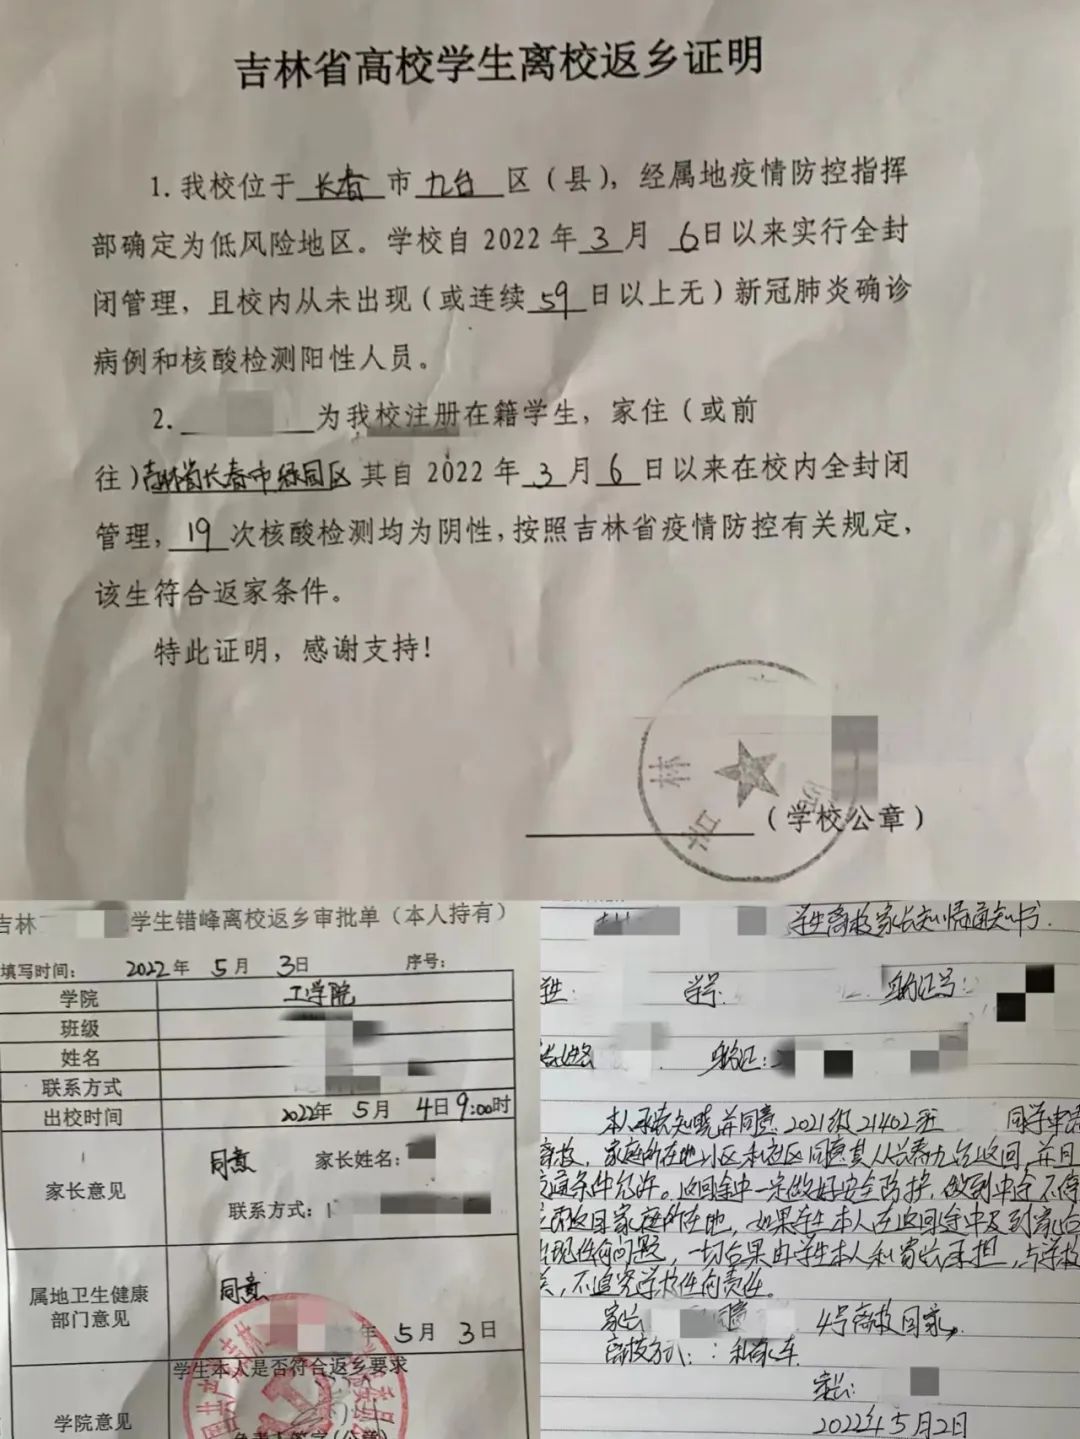 吉林省高校学生离校返乡证明
1.我校位于长春市九台区(县),经属地疫情防控指挥
部确定为低风险地区。学校自2022年3月6日以来实行全封
闭管理,且校内从未出现(或连续59日以上无)新冠肺炎确诊
病例和核酸检测阳性人员。
2.为我校注册在籍学生,家住(或前
往)吉林省长春市绿园区其自2022年3月6日以来在校内全封闭
管理,19次核酸检测均为阴性,按照吉林省疫情防控有关规定,
该生符合返家条件。
特此证明,感谢支持!
吉林
(学校公章)
吉林 学生错峰离校返乡审批单(本人持有)
填写时间: 2022年5月3日 序号:
学院 工学院
班级
姓名
联系方式
出校时间 2022年5月4日9:00时
家长意见 同意 家长姓名:
联系方式:
属地卫生健康
部门意见
同意
年5月3日
学生本人是否符合返乡要求
学院意见
学生离校家长知情通知书.
姓: 学号: 身份证号:
姓名 身份证:
本人 知晓并同意 2021级21402班 同学申请
离校,家庭所在地小区和社区同意其从长春九台返回,并且
交通条件允许。返回途中一定做好安全防护,做到中途不停
返回家庭所在地,如果学生本人在返回途中及到家后
出现任何问题,一切后果由学生本人和家长承担,与学校
关,不追究学校任何责任。
家长 同意 4号离校回家.
离校方式:私家车
家长:
2022年5月2日